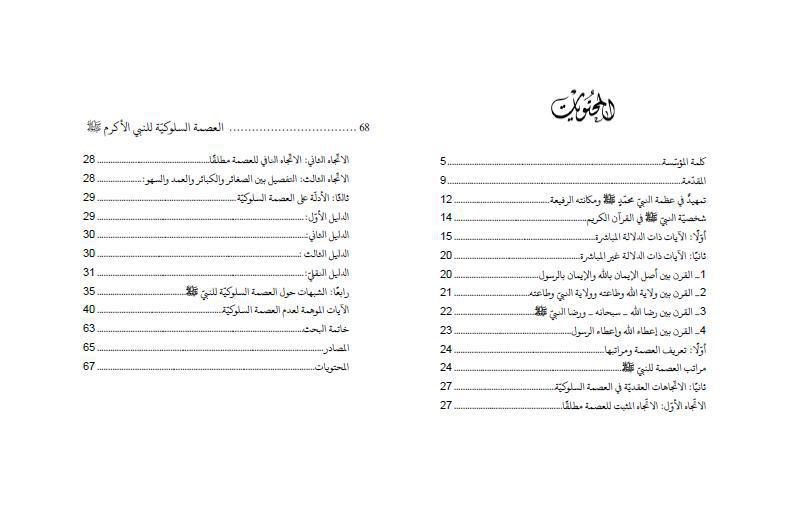 المحتويات
كلمة المؤسّسة................................5
المقدّمة................................9
تمهيدٌ في عظمة النبيّ محمّدٍ ﷺ ومكانته الرفيعة................................12
شخصيّة النبيّ ﷺ في القرآن الكريم................................14
أوّلًا: الآيات ذات الدلالة المباشرة................................15
ثانيًا: الآيات ذات الدلالة غير المباشرة................................20
1ـ القرن بين أصل الإيمان بالله والإيمان بالرسول................................20
2ـ القرن بين ولاية الله وطاعته وولاية النبيّ وطاعته................................21
3ـ القرن بين رضا الله ـ سبحانه ـ ورضا النبيّ ﷺ................................22
4ـ القرن بين إعطاء الله وإعطاء الرسول................................23
أوّلًا: تعريف العصمة ومراتبها................................24
مراتب العصمة للنبيّ ﷺ................................24
ثانيًا: الاتّجاهات العقديّة في العصمة السلوكيّة................................27
الاتّجاه الأوّل: الاتّجاه المثبت للعصمة مطلقًا................................27
68 ................................ العصمة السلوكيّة للنبي الأكرم ﷺ
الاتّجاه الثاني: الاتّجاه النافي للعصمة مطلقًا................................28
الاتّجاه الثالث: التفصيل بين الصغائر والكبائر والعمد والسهو:................................28
ثالثًا: الأدلّة على العصمة السلوكيّة................................29
الدليل الأوّل:................................29
الدليل الثاني:................................30
الدليل الثالث :................................30
الدليل النقليّ:................................31
رابعًا: الشبهات حول العصمة السلوكيّة للنبيّ ﷺ................................35
الآيات الموهمة لعدم العصمة السلوكيّة................................40
خاتمة البحث................................63
المصادر................................65
المحتويات................................67